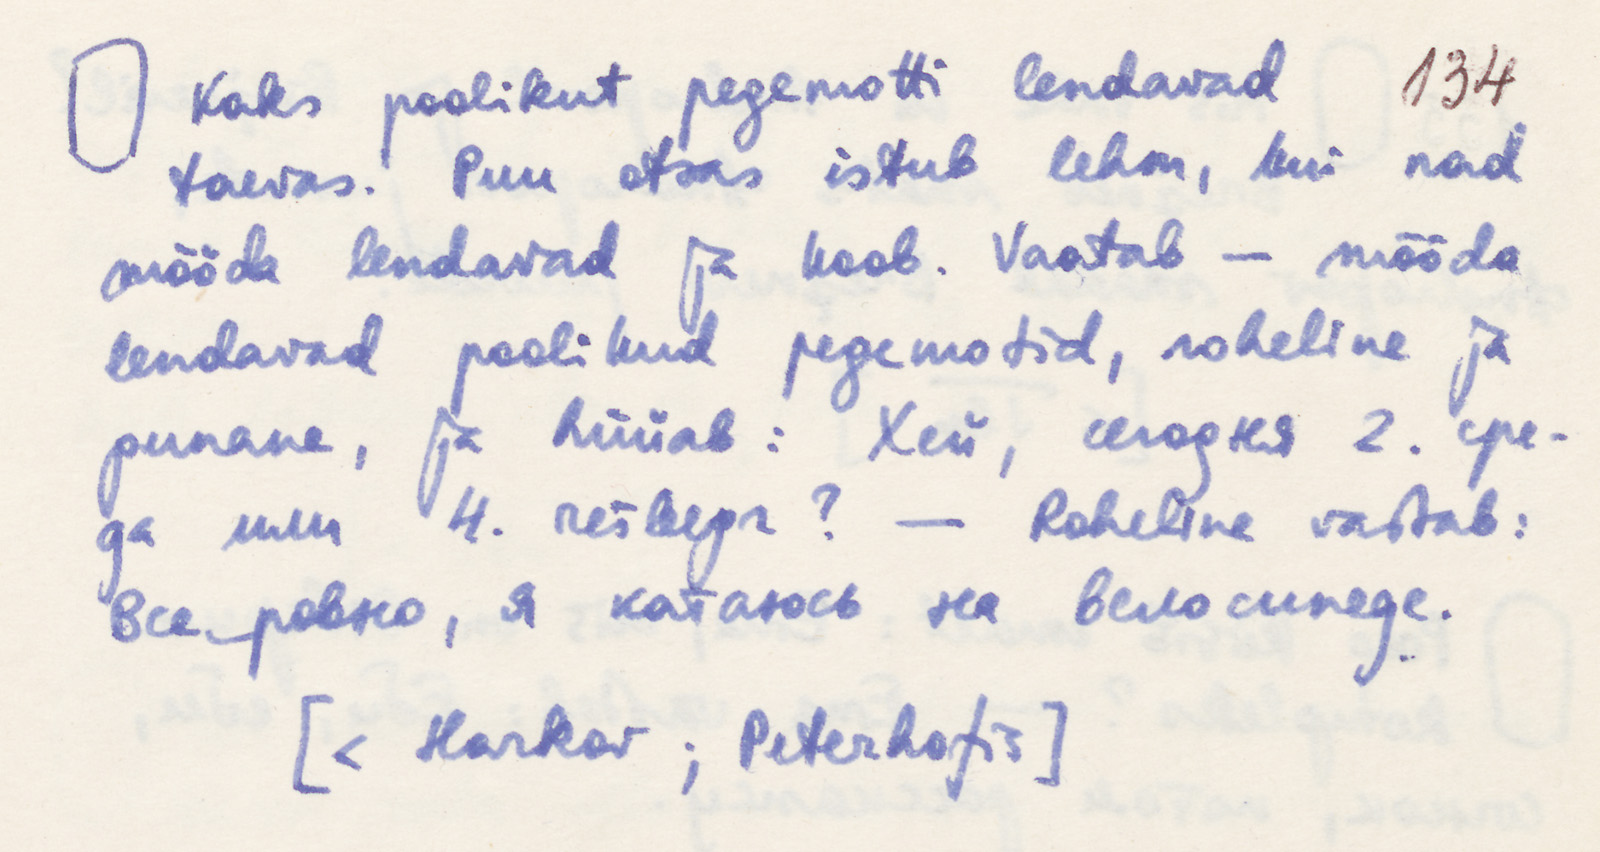 Kaks poolikut pegemotti lendavad 134
taevas. Puu otsas istub lehm, kui nad
mööda lendavad ja koob. Vaatab — mööda
lendavad poolikud pegemotid, roheline ja
punane, ja hüüab: Хей, сегодня 2. сре-
да или 4. четверг? — Roheline vastab:
Все равно, я катаюсь на велосипеде.
[< Harkov ; Peterhofis]